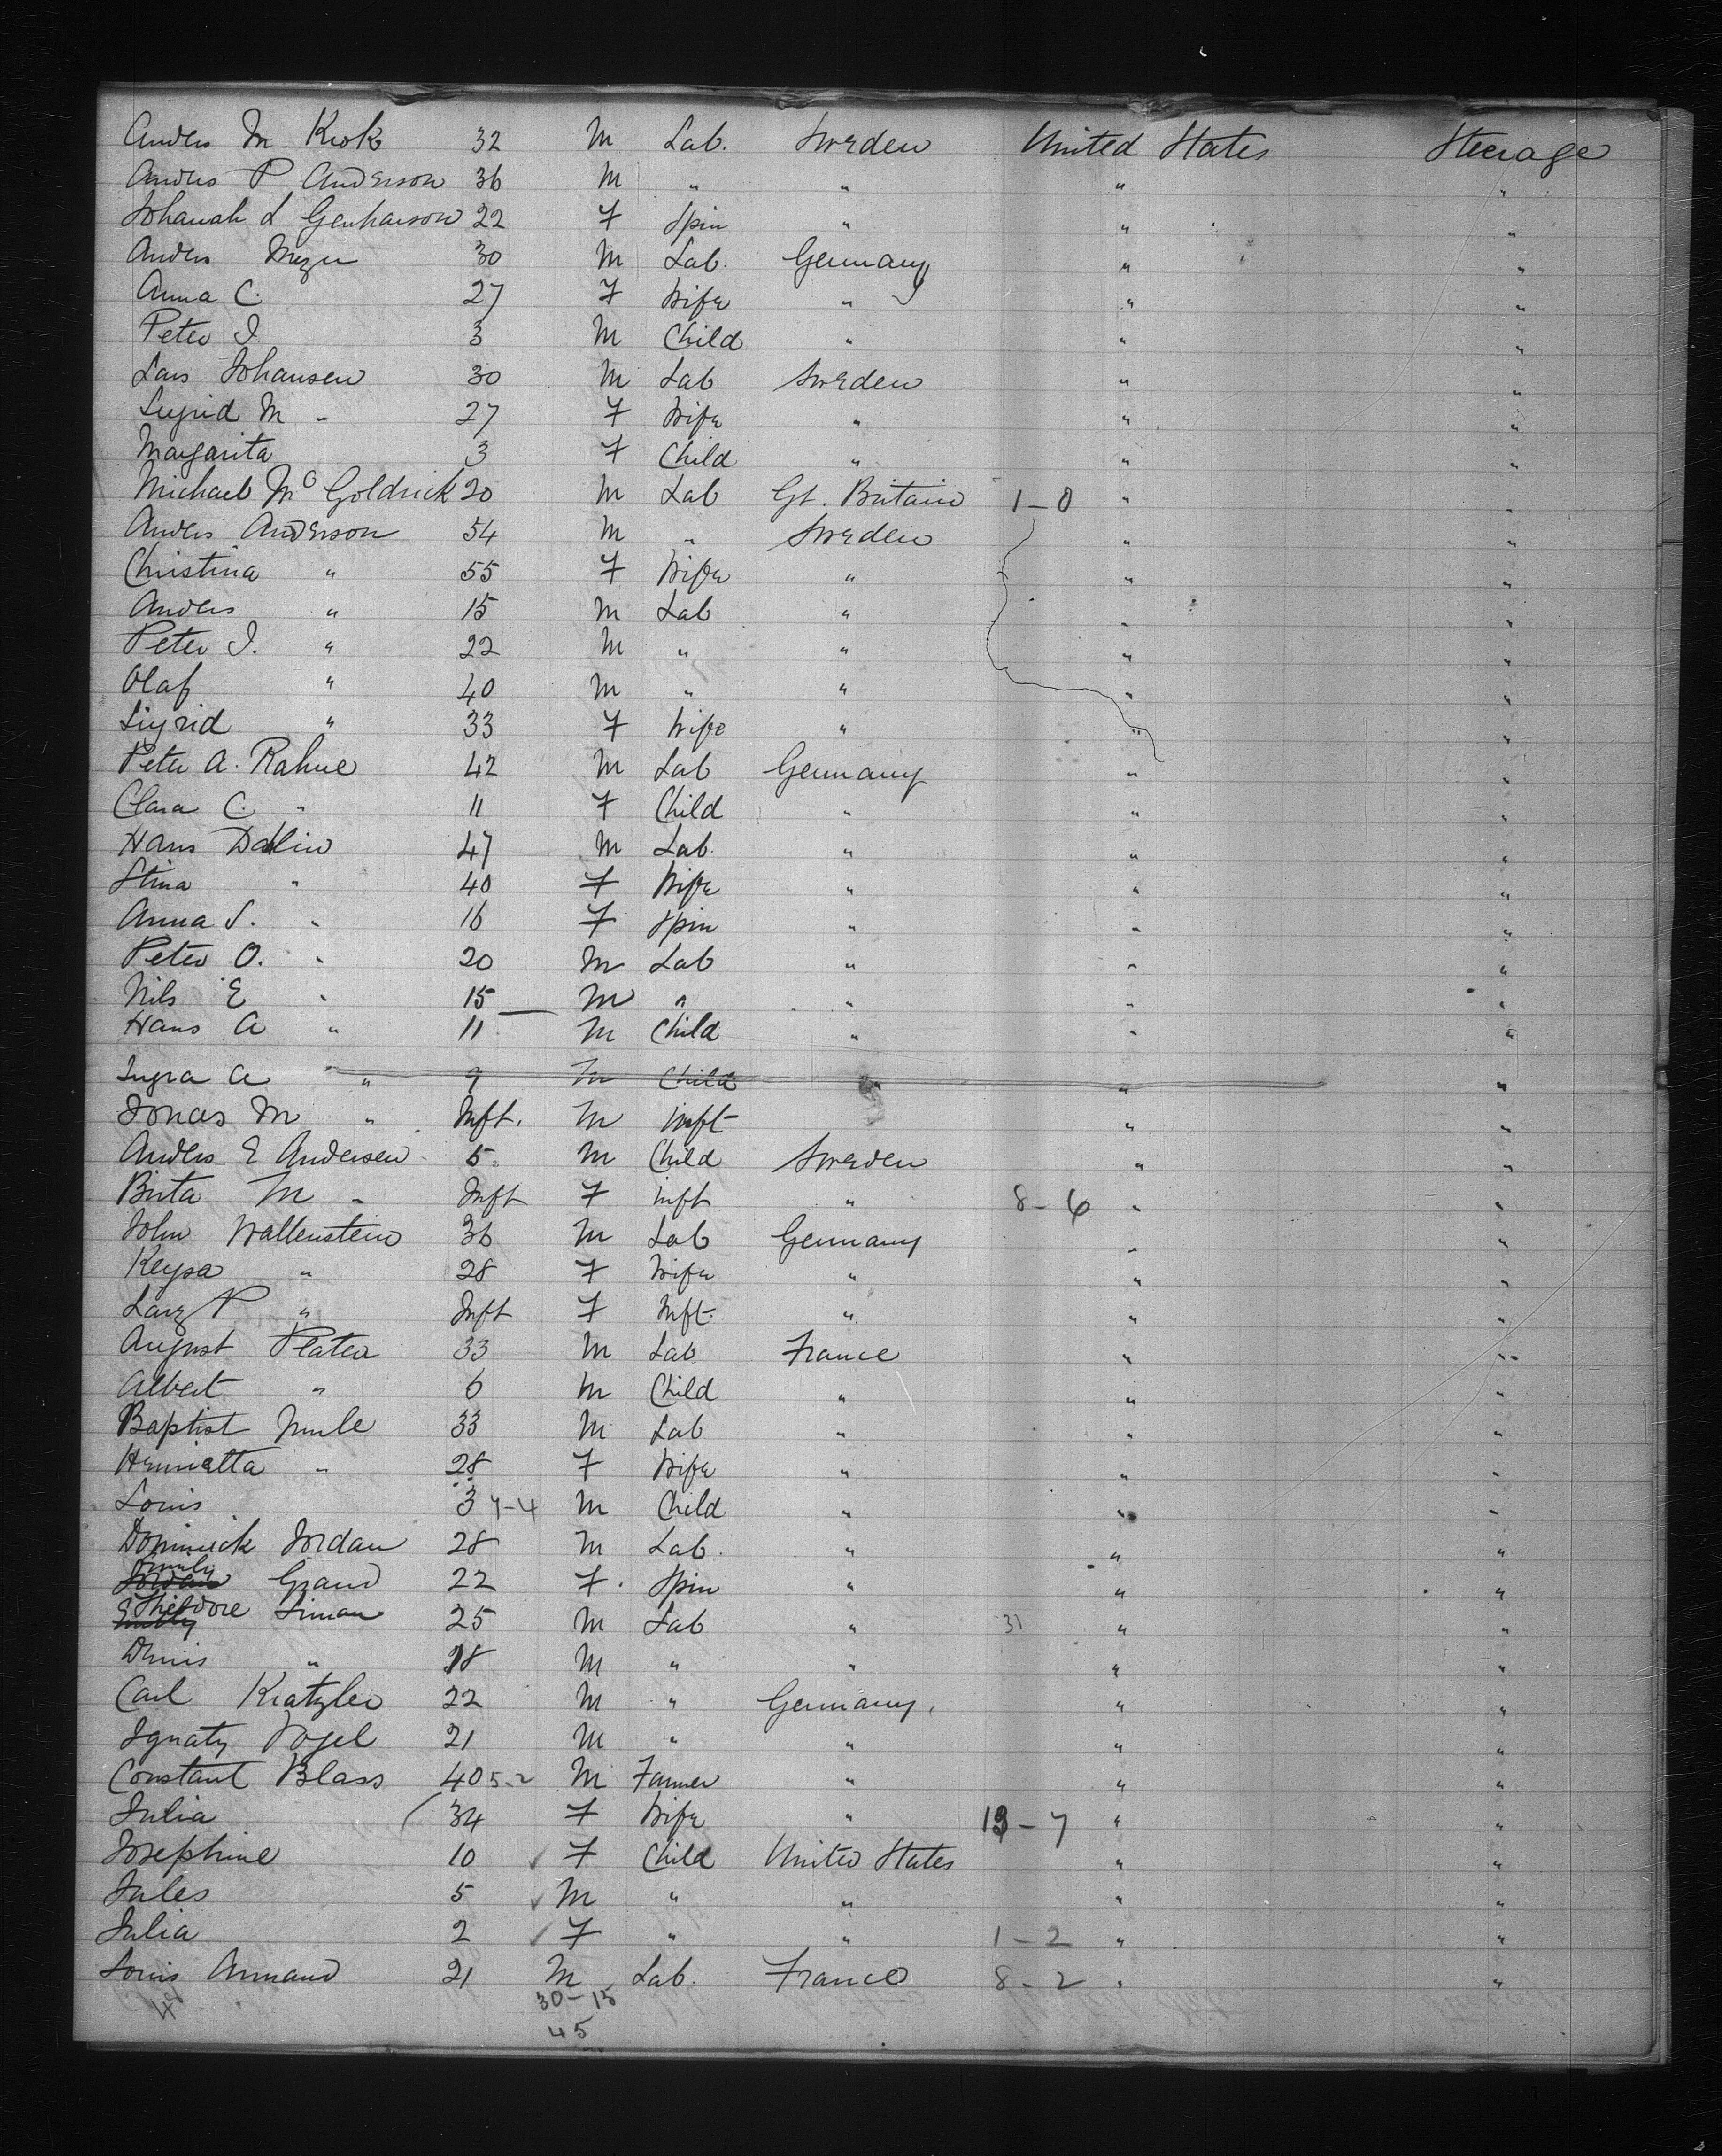 Anders M Krok 32 M Lab. Sweden United States Steerage
Anders P Anderson 36 M " " " "
Johanah L Genhanson 22 F Spin " " "
Anders Mezer 30 M Lab. Germany " "
Anna C. 27 F Wife " " "
Peter J. 3 M Child " " "
Lars Johansen 30 M Lab Sweden " "
Sigrid M " 27 F Wife " " "
Margarita 3 F Child " " "
Michael McGoldrick 20 M Lab Gt. Britain 1-0 " "
Anders Anderson 54 M " Sweden " "
Christina " 55 F Wife " " "
Anders " 15 M Lab " " "
Peter J. " 22 M " " " "
Olaf " 40 M " " " "
Sigrid " 33 F Wife " " "
Peter A. Rahne 42 M Lab Germany " "
Clara C. " 11 F Child " " "
Hans Dahlin 47 M Lab. " " "
Stina " 40 F Wife " " "
Anna S. " 16 F Spin " " "
Peter O. " 20 M Lab " " "
Nils E " 15 M " " " "
Hans A " 11 M Child " " "
Ingra A " 9 M Child " " "
Jonas M " Inft. M Inft " "
Anders E Andersen 5 M Child Sweden " "
Birta M " Inft F Inft " 8-6 " "
John Wallenstein 36 M Lab Germany " "
Keysa " 28 F Wife " " "
Larz P " Inft F Inft. " " "
August Plater 33 M Lab France " "
Albert " 6 M Child " " "
Baptist 33 M Lab " " "
Henrietta " 28 F Wife " " "
Louis 3 7-4 M Child " " "
Dominick Jordan 28 M Lab. " " "
Emily Grand 22 F. Spin " " "
Theodore Siman 25 M Lab " 31 " "
Denis " 28 M " " " "
Carl Kratzler 22 M " Germany. " "
Ignatz Vogel 21 M " " " "
Constant Blass 40 5-2 M Farmer " " "
Julia 34 F Wife " 13-7 " "
Josephine 10 F Child United States " "
Jules 5 M " " " "
Julia 2 F " " 1-2 " "
Louis Armand 21 M Lab. France 8-2 " "
48 30-15
45